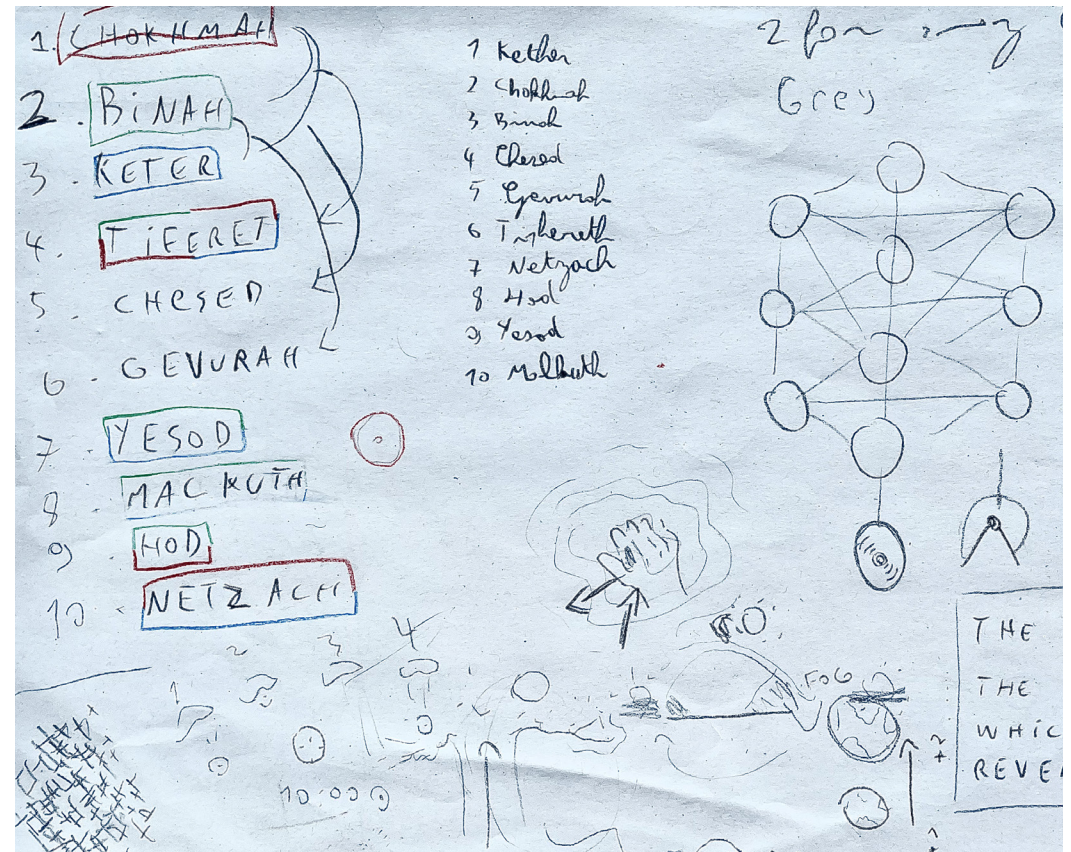 1. CHOKHMAH
2. BiNAH
3. KETER
4. TiFERET
5. CHeSED
6. GEVURAH
7. YESOD
8. MACKUTH
9. HOD
10. NETZACH
1 Kether
2 Chokhmah
3 Binah
4 Chesed
5 Gevurah
6 Tiphereth
7 Netzach
8 Hod
9 Yesod
10 Malkuth
2 for
Grey
1
2
3
4
10:00
FOG
THE
THE
WHiC
REVE